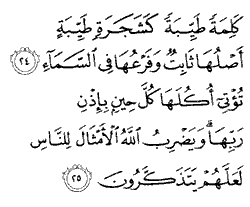 كَلِمَةً طَيِّبَةً كَشَجَرَةٍ طَيِّبَةٍ
أَصْلُهَا ثَابِتٌ وَفَرْعُهَا فِى ٱلسَّمَآءِ ٢٤
تُؤْتِىٓ أُكُلَهَا كُلَّ حِينٍۭ بِإِذْنِ
رَبِّهَا ۗ وَيَضْرِبُ ٱللَّهُ ٱلْأَمْثَالَ لِلنَّاسِ
لَعَلَّهُمْ يَتَذَكَّرُونَ ٢٥